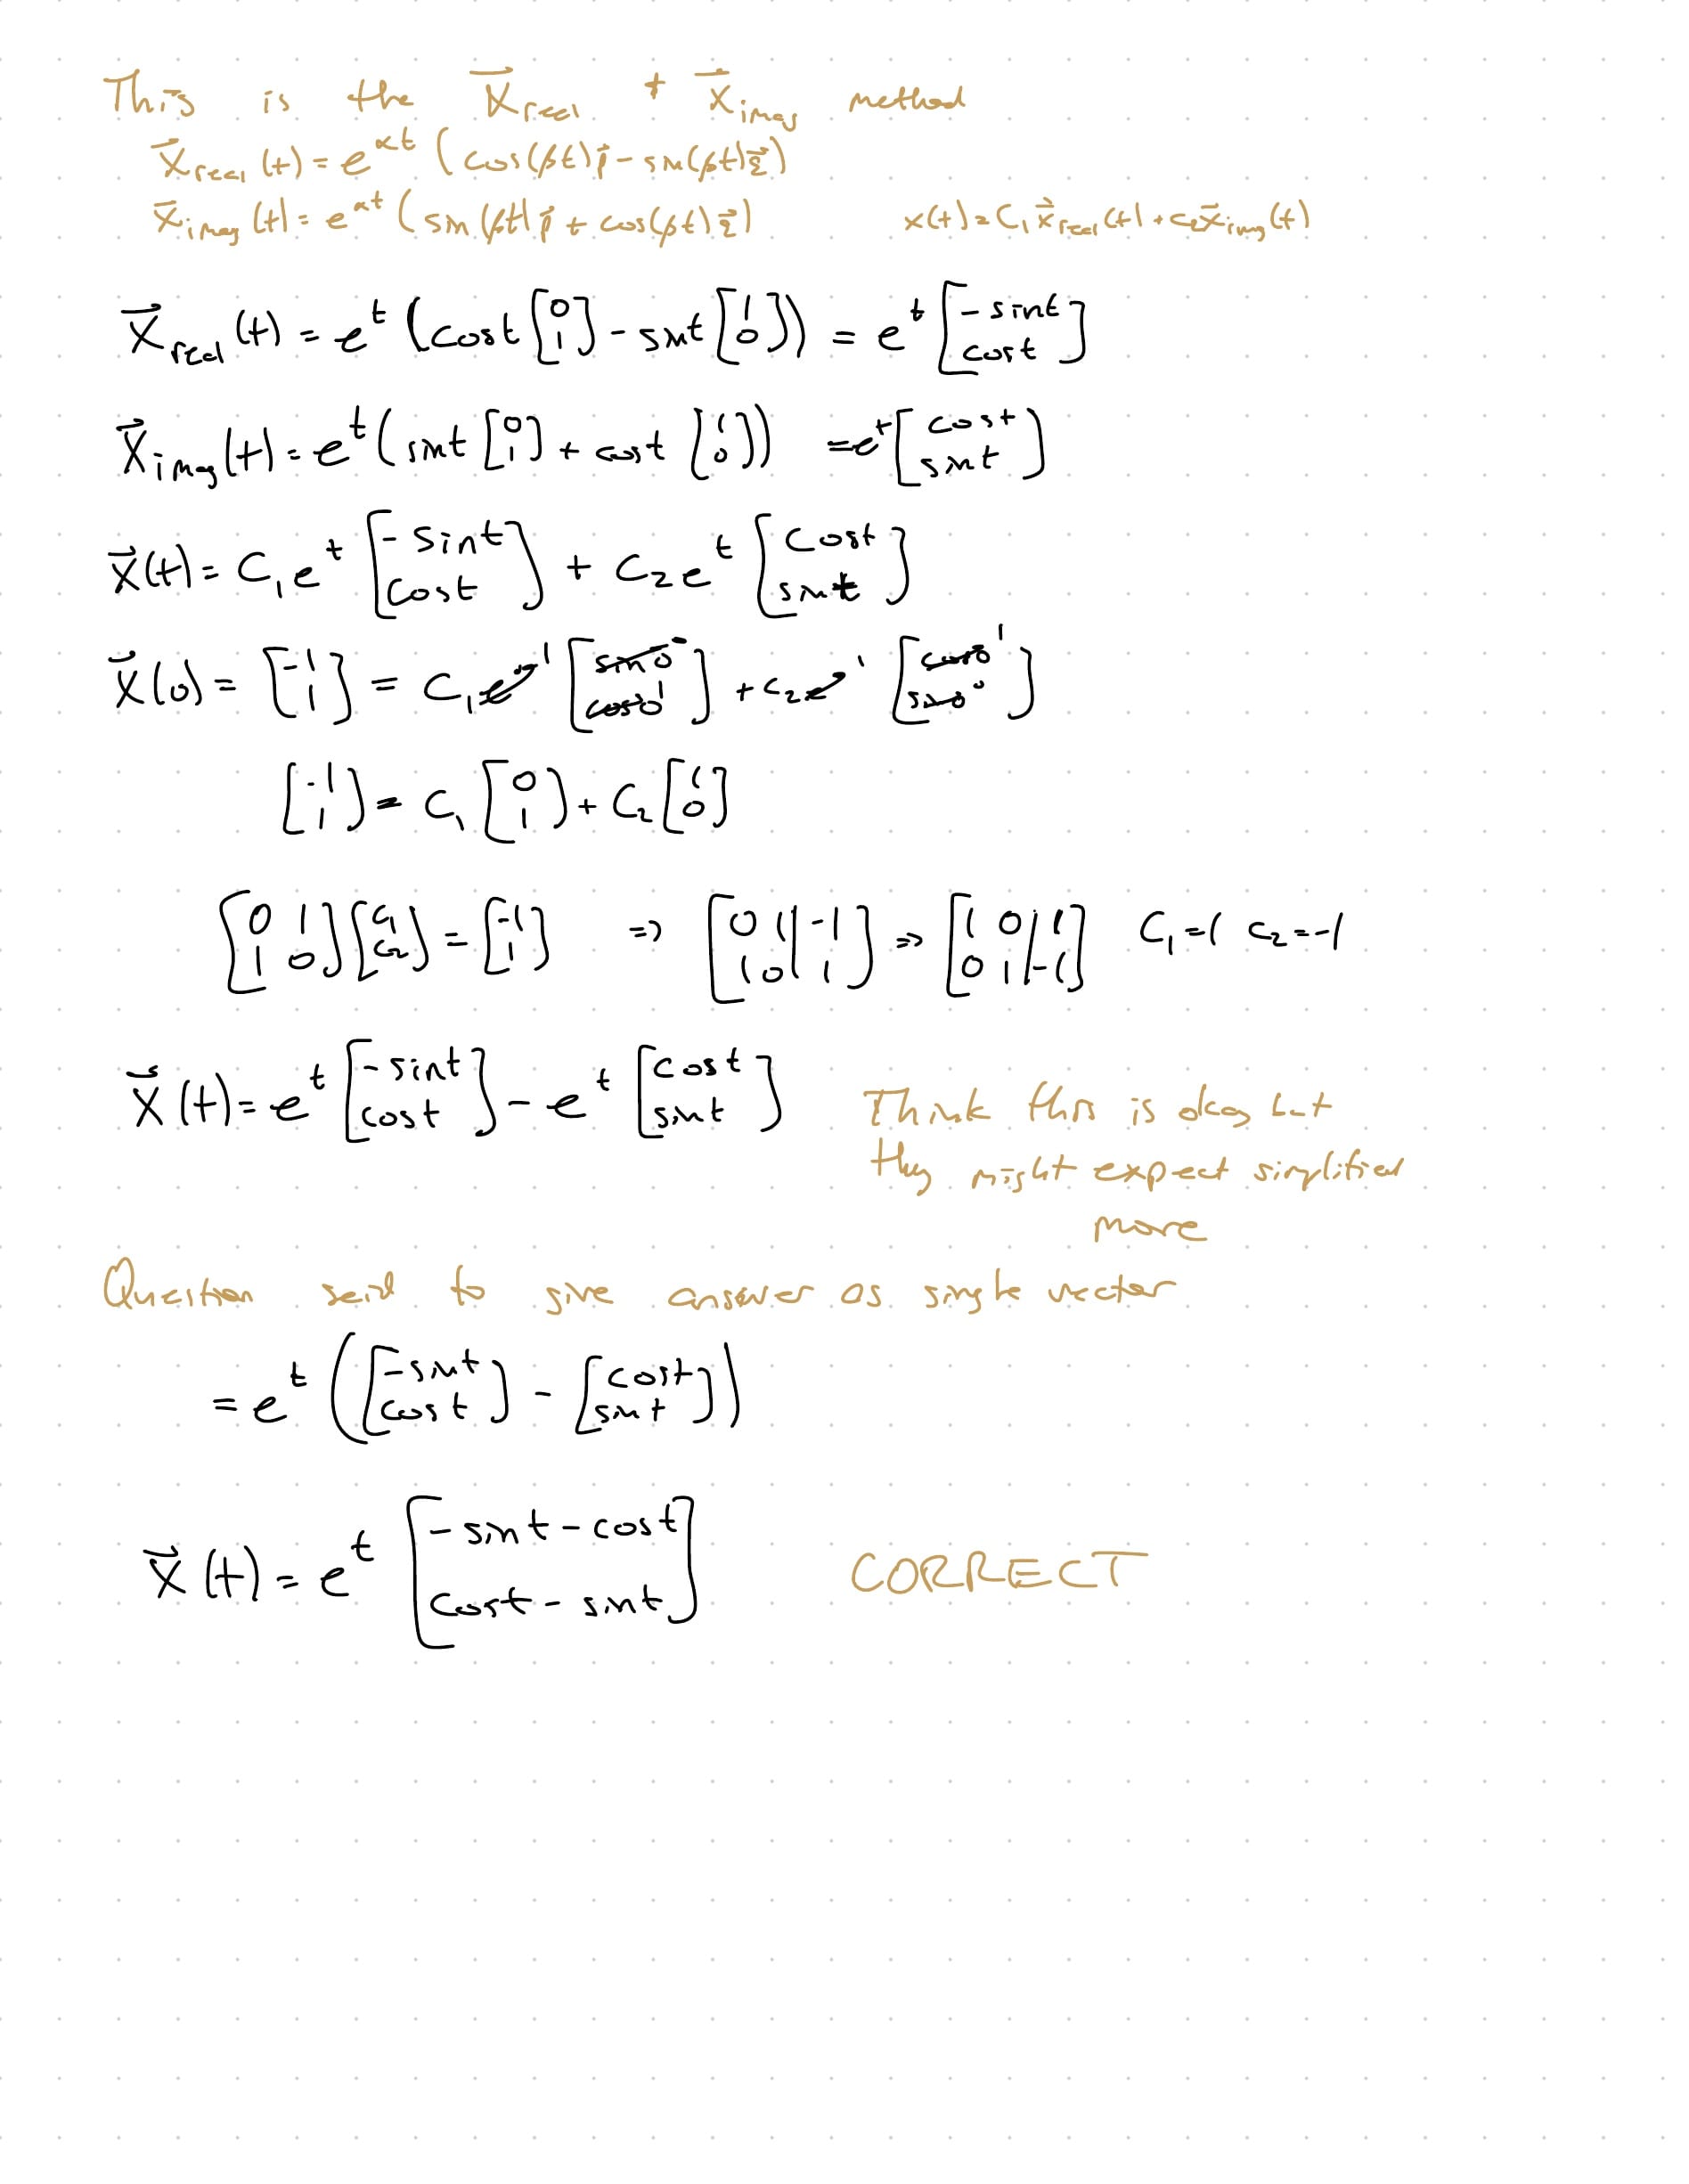 This is the x⃗real + x⃗imag method
x⃗real(t) = e^αt (cos(βt)p⃗ - sin(βt)q⃗)
x⃗imag(t) = e^αt (sin(βt)p⃗ + cos(βt)q⃗)    x(t) = C₁x⃗real(t) + C₂x⃗imag(t)
x⃗real(t) = e^t (cost [0; 1] - sint [1; 0]) = e^t [-sint; cost]
x⃗imag(t) = e^t (sint [0; 1] + cost [1; 0]) = e^t [cost; sint]
x⃗(t) = C₁e^t [-sint; cost] + C₂e^t [cost; sint]
x⃗(0) = [-1; 1] = C₁e⁰ 1 [sin0 0; cos0 1] + C₂e⁰ 1 [cos0 1; sin0 0]
[-1; 1] = C₁ [0; 1] + C₂ [1; 0]
[0 1; 1 0] [C₁; C₂] = [-1; 1] => [0 1 | -1; 1 0 | 1] => [1 0 | 1; 0 1 | -1] C₁=1 C₂=-1
x⃗(t) = e^t [-sint; cost] - e^t [cost; sint]
Think this is okay but
they might expect simplified
more
Question said to give answer as single vector
= e^t ([-sint; cost] - [cost; sint])
x⃗(t) = e^t [-sint-cost; cost-sint] CORRECT